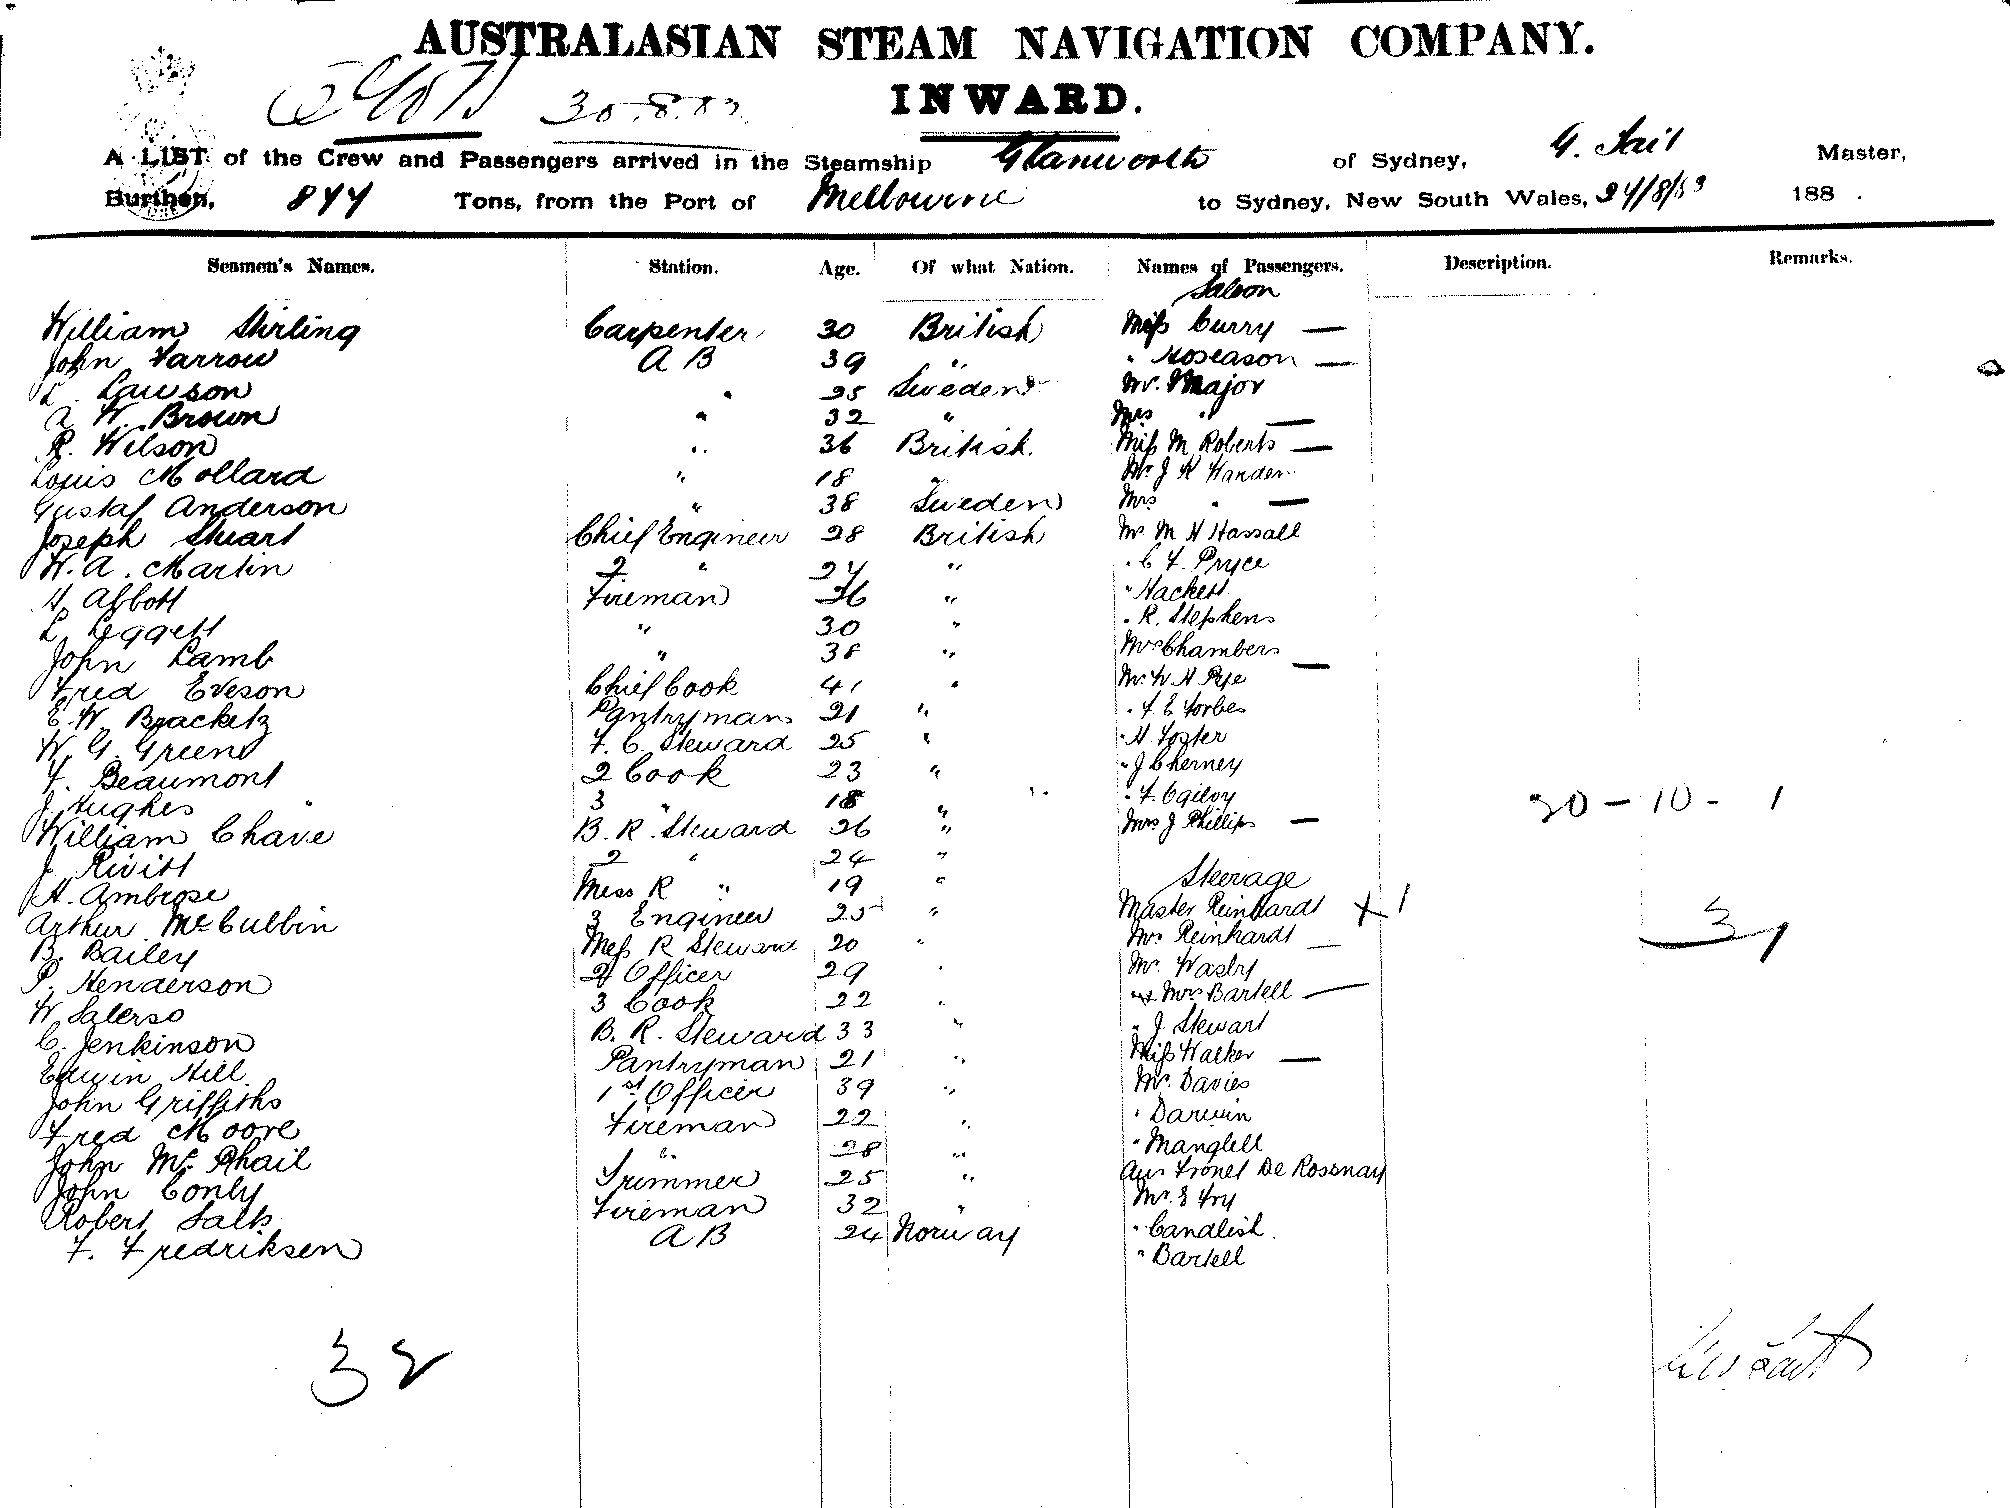 AUSTRALASIAN STEAM NAVIGATION COMPANY.
INWARD.
30.8.83
A LIST of the Crew and Passengers arrived in the Steamship Glanworth of Sydney, G. Tait Master,
Burthen, 877 Tons, from the Port of Melbourne to Sydney, New South Wales, 27/8/83 188 .
Seamen's Names. Station. Age. Of what Nation. Names of Passengers. Description. Remarks.
Saloon
William Stirling Carpenter 30 British Miss Curry —
John Farrow A B 39 " " Roseason —
L. Lawson " 25 Sweden Mr. Major
A W. Brown " 32 " Mrs " —
R. Wilson " 36 British. Miss M Roberts —
Louis Mollard " 18 Mr J K Warden
Gustaf Anderson " 38 Sweden Mrs " —
Joseph Stuart Chief Engineer 28 British Mr M H Hassall
W. A. Martin 2 " 27 " " C F. Pryce
H Abbott Fireman 36 " " Hackett
L Leggett " 30 " " R. Stephens
John Lamb " 38 " Mrs Chambers —
Fred Eveson Chief Cook 41 " Mr W H Pye
E. W. Bracketz Pantryman 21 " " F E Forbes
W. G. Green F. C. Steward 25 " " H Foster
F. Beaumont 2 Cook 23 " " J Cherney
J. Hughes 3 " 18 " " F. Ogilvy 20 - 10 - 1
William Chave B. R. Steward 26 " Mrs J Phillips —
J. Rivitt 2 " 24 "
Steerage
H. Ambrose Mess R " 19 "
Arthur McCubbin 3 Engineer 25 " Master Reinhardt X 1 31
B. Bailey Mess R Steward 20 " Mrs Reinhardt —
P. Henderson 2 Officer 29 " Mr. Wasby
W Salerso 3 Cook 22 " Mrs Bartell —
C. Jenkinson B. R. Steward 33 " " J. Stewart
Edwin Hill Pantryman 21 " Miss Walker —
John Griffiths 1st Officer 39 " Mr. Davies
Fred Moore Fireman 22 " " Darwin
John McPhail " 28 " " Manglell
John Conly Trimmer 25 " Lionel De Rossnay
Robert Salts Fireman 32 " Mr. E Fry
F. Fredriksen A B 24 Norway " Candlish.
" Bartell
32